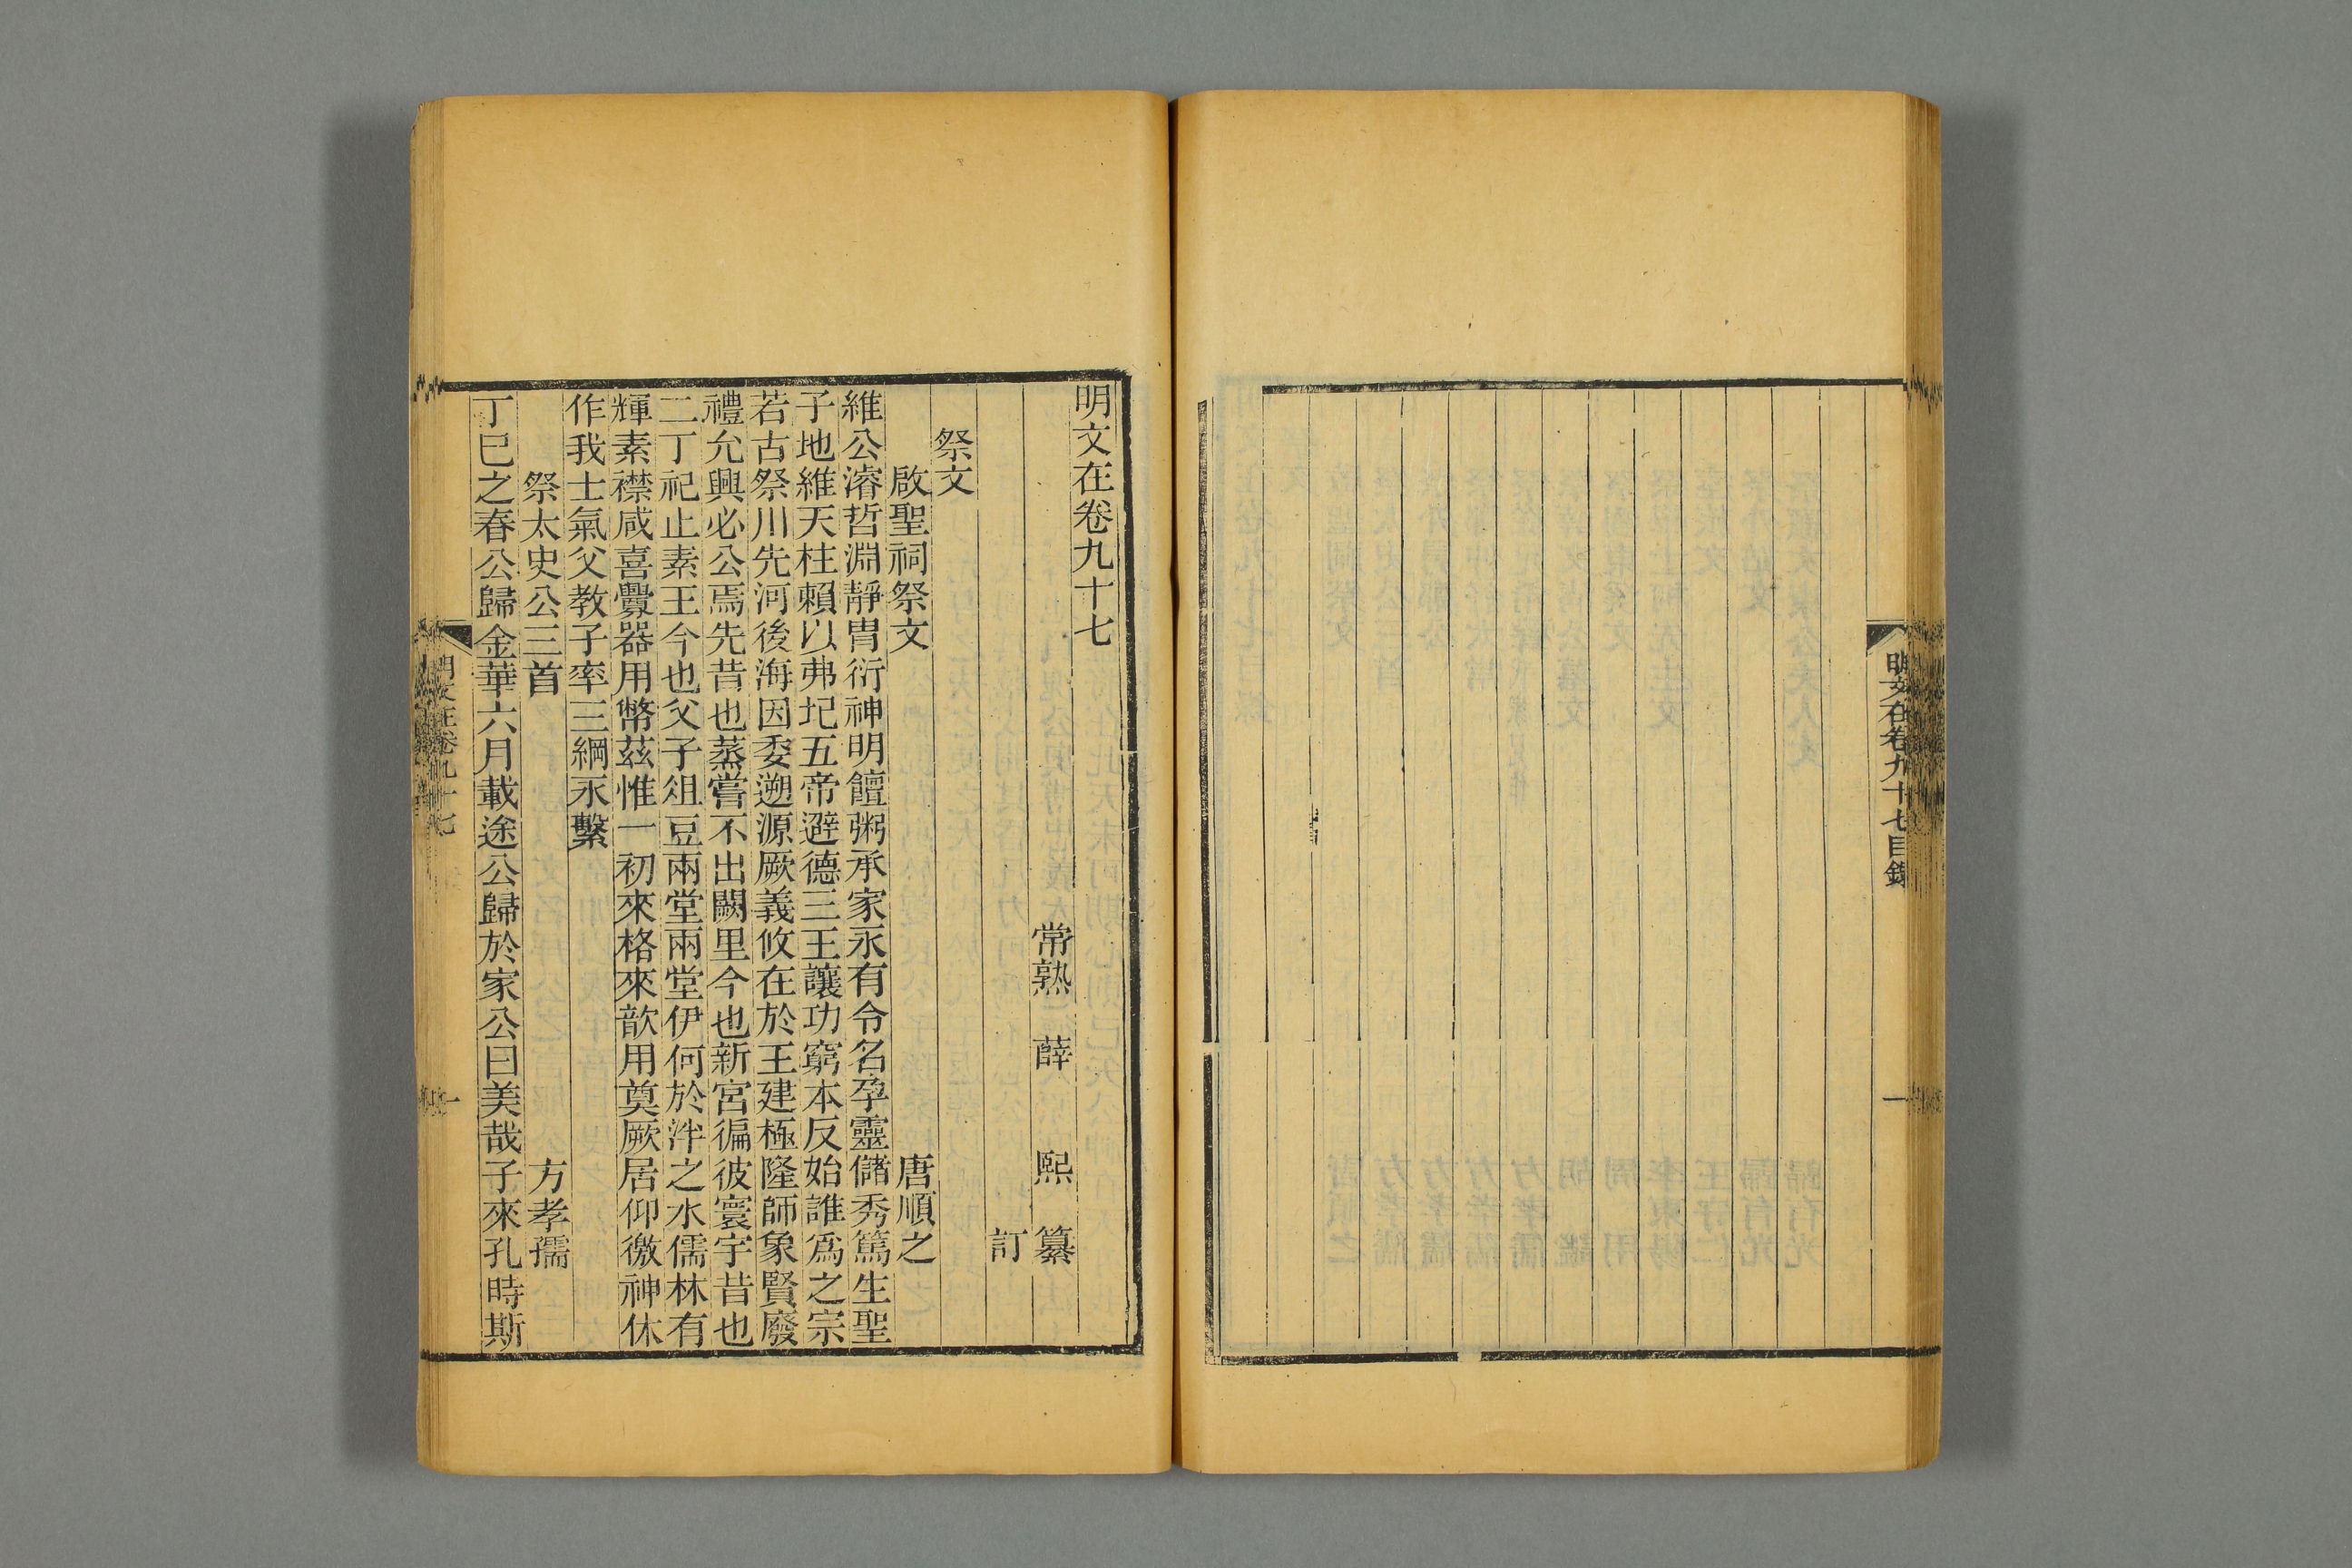 明文在卷九十七目錄
一
明文在卷九十七
常熟 薛 熙 纂
訂
祭文
啟聖祠祭文 唐順之
維公濬哲淵靜胄衍神明饘粥承家永有令名孕靈儲秀篤生聖
子地維天柱賴以弗圮五帝避德三王讓功窮本反始誰爲之宗
若古祭川先河後海因委遡源厥義攸在於王建極隆師象賢廢
禮允興必公焉先昔也蒸嘗不出闕里今也新宮徧彼寰宇昔也
二丁祀止素王今也父子俎豆兩堂兩堂伊何於泮之水儒林有
輝素襟咸喜釁器用幣茲惟一初來格來歆用奠厥居仰徼神休
作我士氣父教子率三綱永繫
祭太史公三首 方孝孺
丁巳之春公歸金華六月載途公歸於家公曰美哉子來孔時斯
明文在卷九十七
一